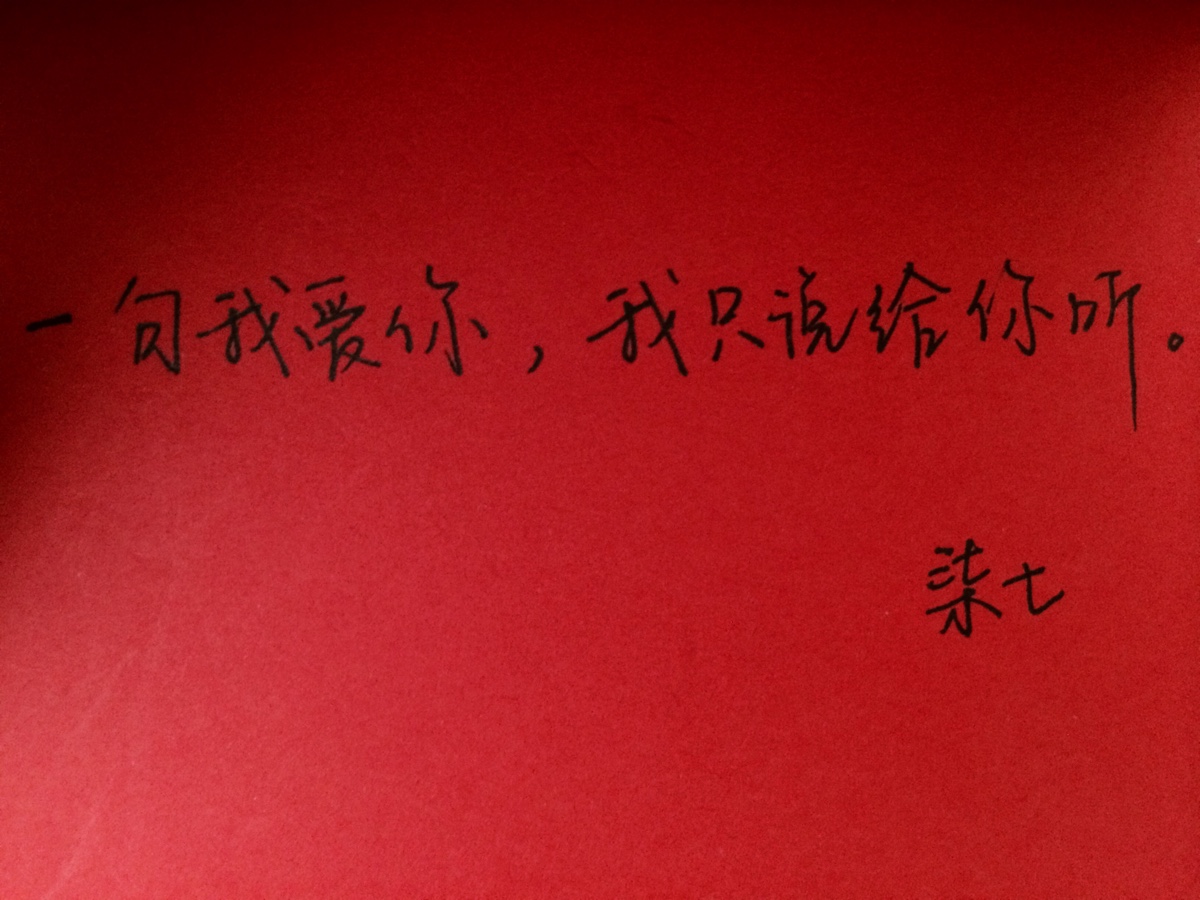 一句我爱你，我只说给你听。
柒七